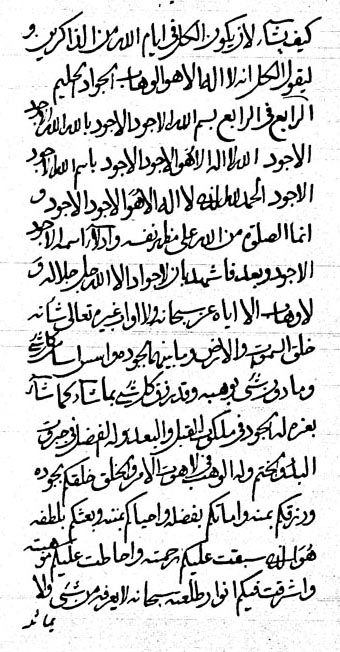 كيف يشاء لان يكون الكل في ايام الله من الذاكرين و
ليقول الكل انه لا اله الا هو الوهاب الجواد الحليم
الرابع في الرابع بسم الله الاجود الاجود بالله الله الاجود
الاجود الله لا اله الا هو الاجود الاجود باسم الله الاجود
الاجود الحمد لله الذي لا اله الا هو الاجود الاجود و
انما الصلوة من الله على مظهر نفسه وادلاء اسمه الاجود
الاجود وبعد فاشهد بان لا جواد الا الله جل جلاله و
لا وهاب الا اياه عز سبحانه ولا اواد غيره تعالى شانه
خلق السموات والارض وما بينهما بجوده
وما دون شيء بوهبيه وقدر رزق كل شيء بما شاء كما شاء
بعزه له الجود في ملكوت القبل والبعد وله الفضل في جبروت
البدء والختم وله الوهب في لاهوت الامر والخلق خلقكم بجوده
ورزقكم بمنه واماتكم بفضله واحياكم بمنه وبعثكم بلطفه
هو الذي سبقت عليكم رحمته واحاطت عليكم موهبته
واشرقت فيكم انوار طلعته سبحانه لا يعرفه من شيء ولا